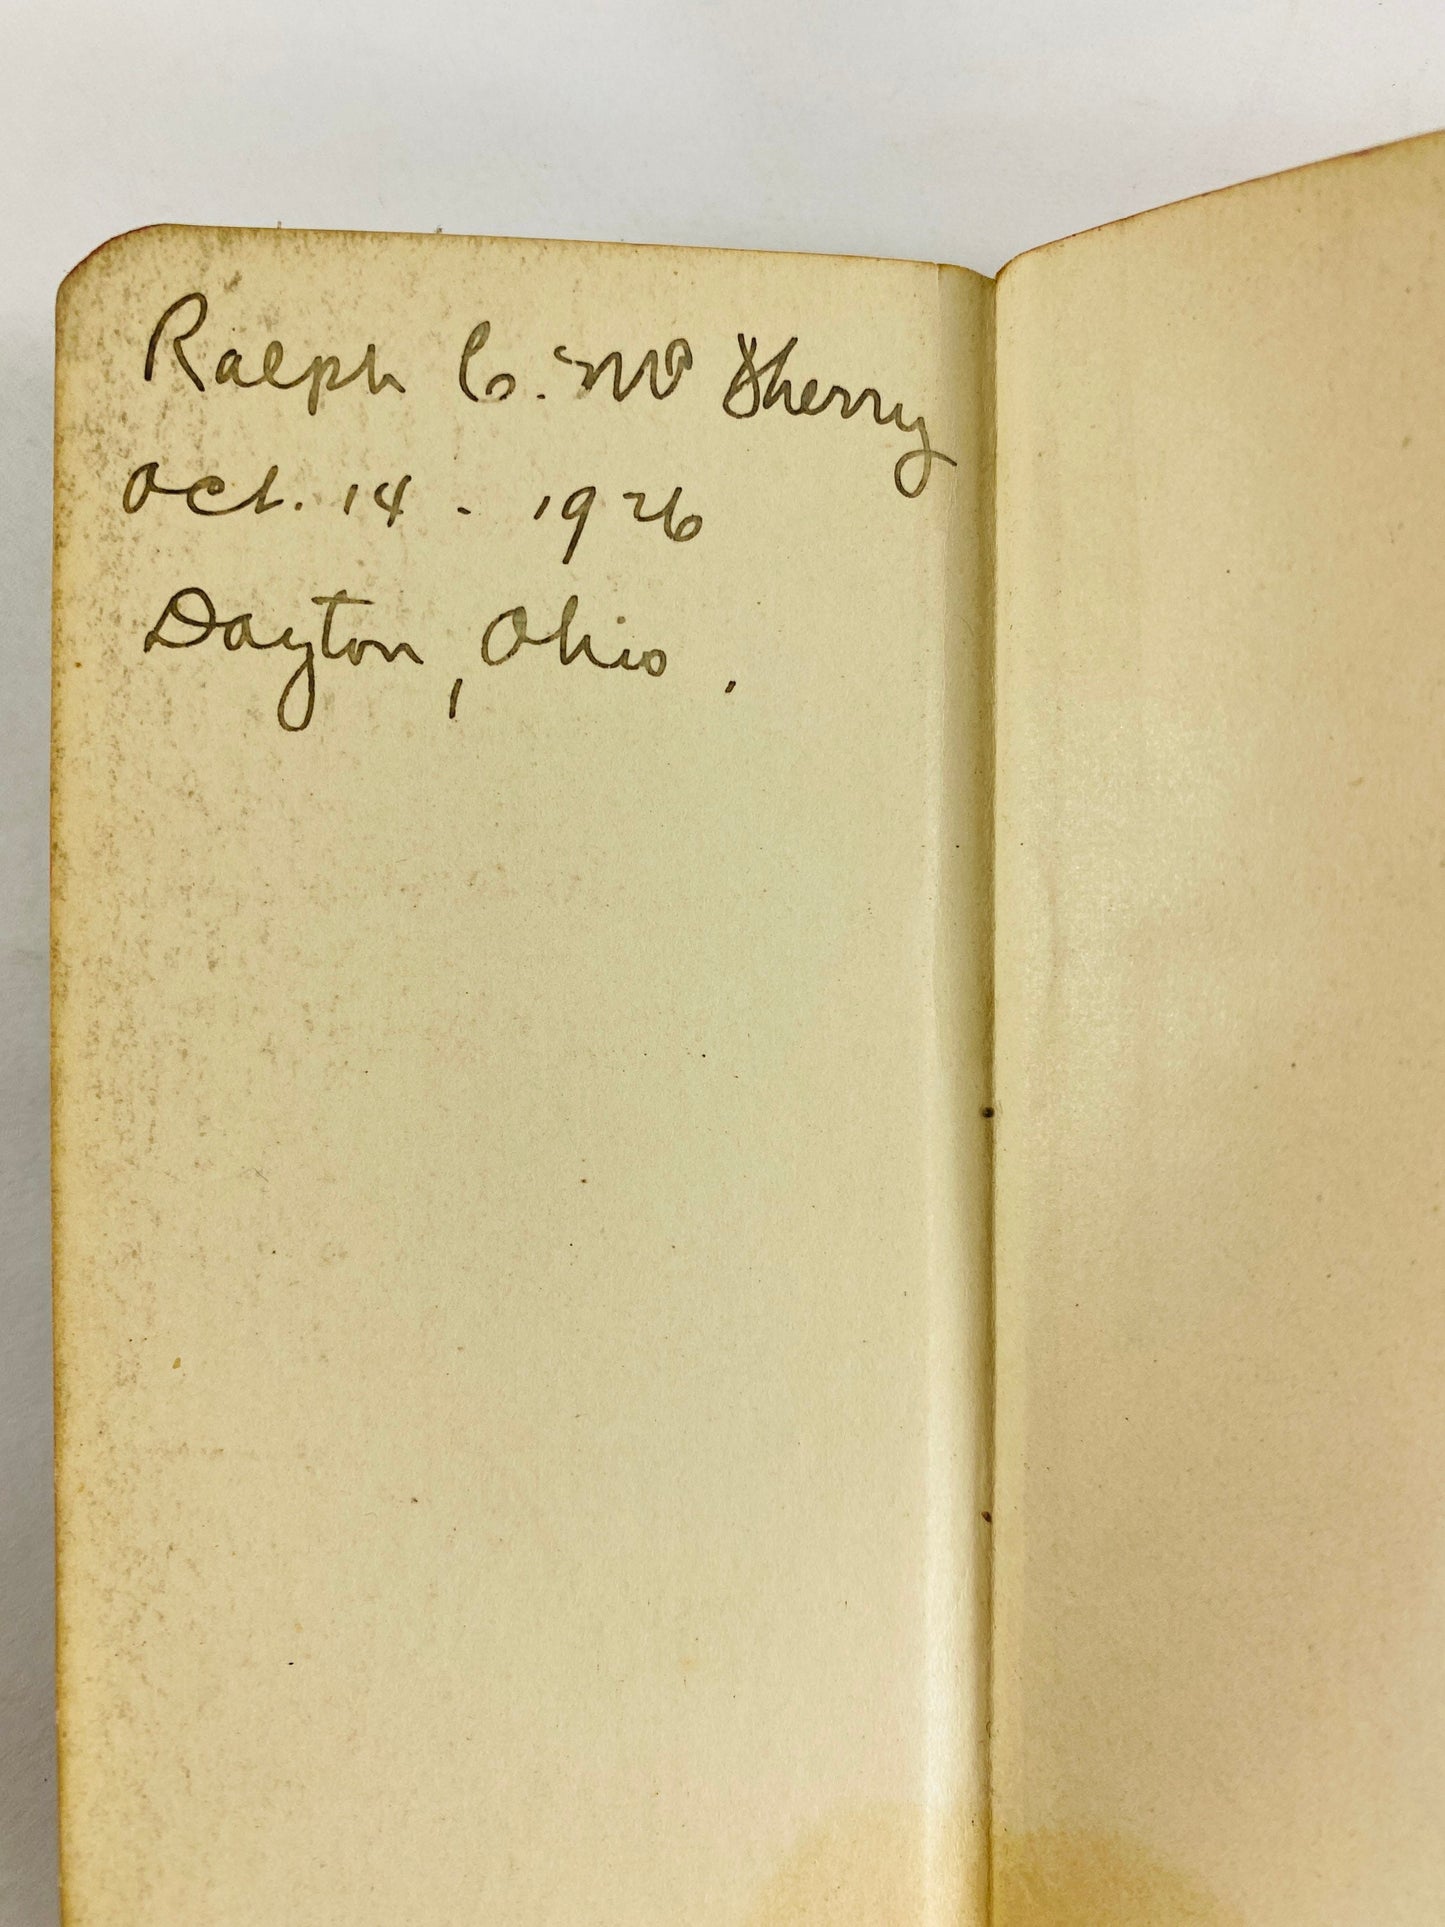 Ralph C. Mc Sherry
Oct. 14 - 1926
Dayton, Ohio.